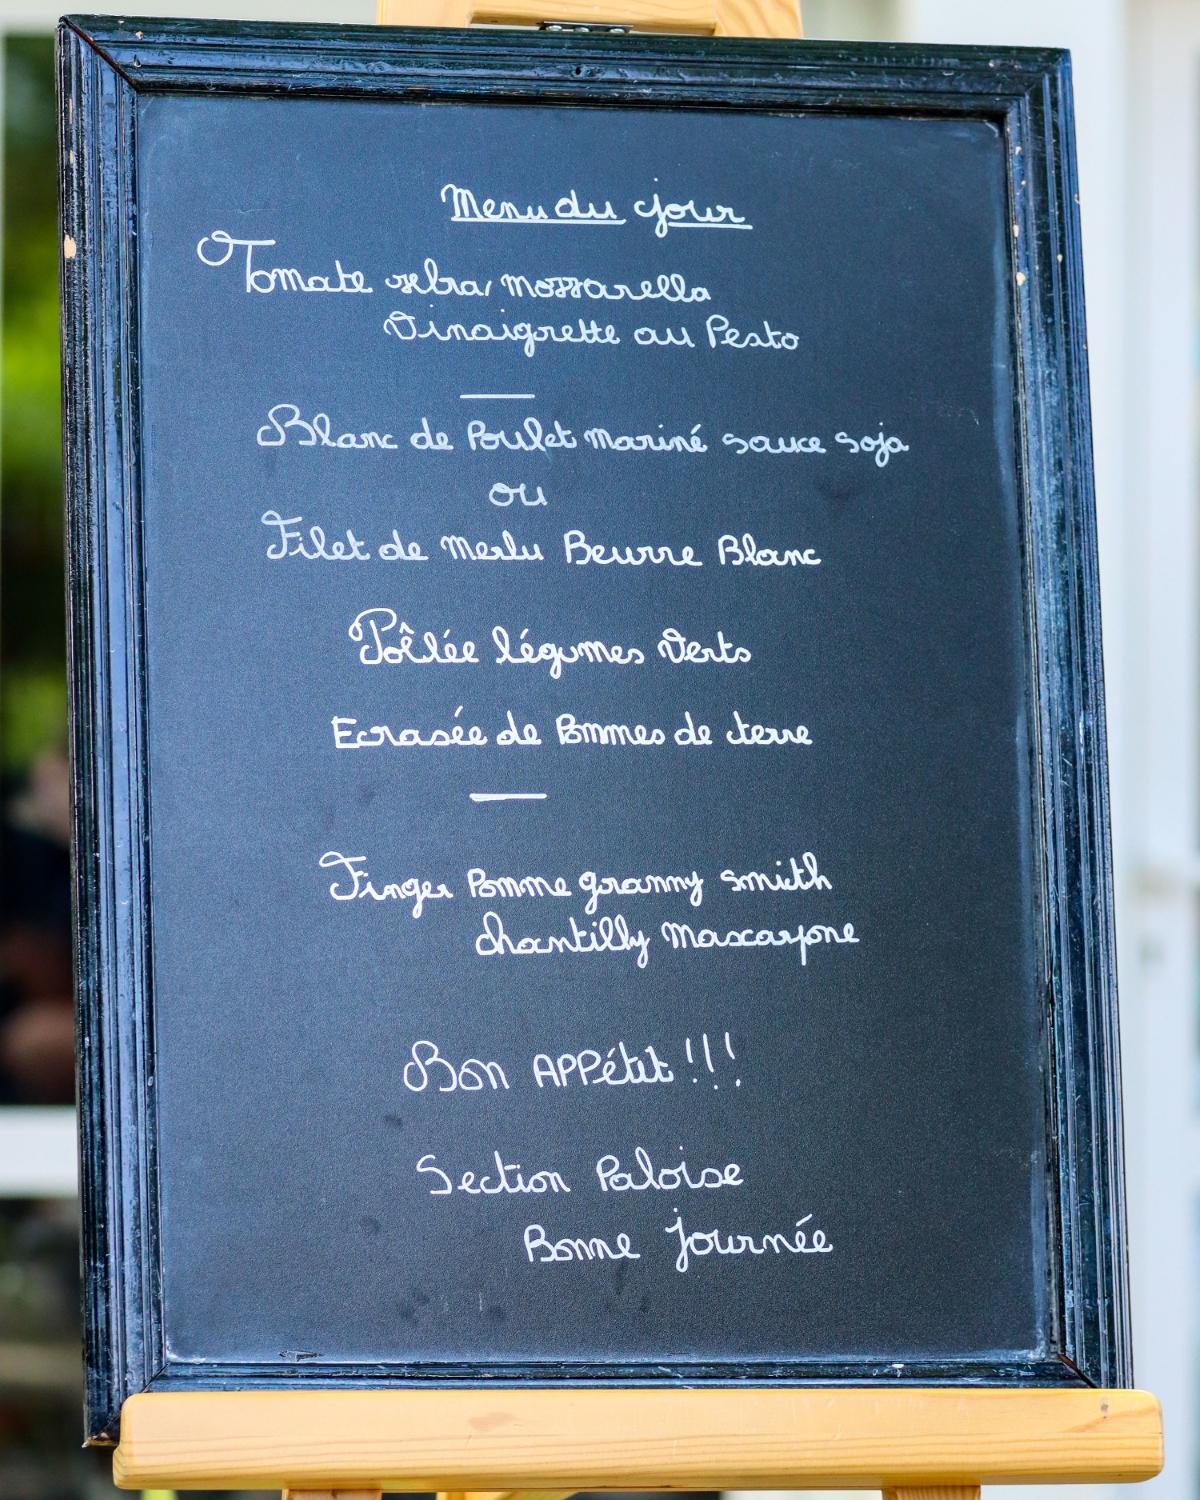 Menu du jour
Tomate zebra, mozzarella
Vinaigrette au Pesto
Blanc de Poulet Mariné sauce soja
ou
Filet de Merlu Beurre Blanc
Poêlée légumes Verts
Ecrasée de Pommes de terre
Finger Pomme granny smith
chantilly Mascarpone
Bon APPétit !!!
Section Paloise
Bonne journée